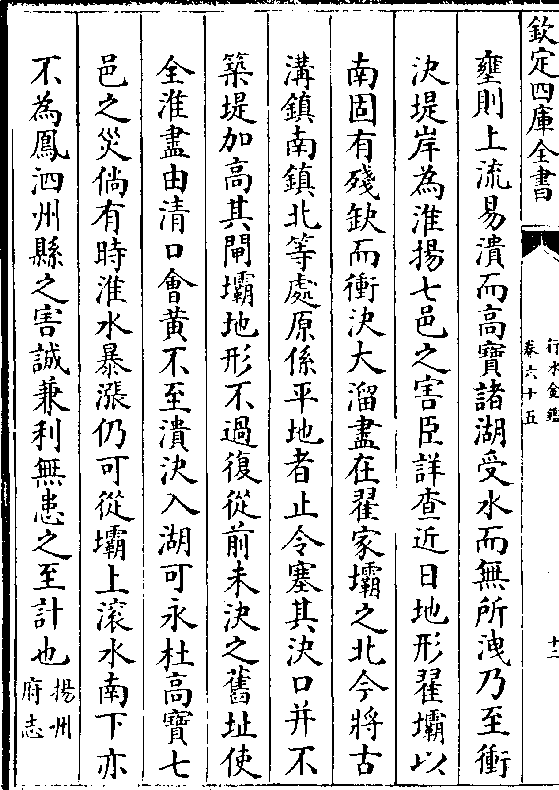 欽定四庫全書
行水金鑑
卷六十五
十二
壅則上流易潰而高寶諸湖受水而無所洩乃至衝
決堤岸為淮揚七邑之害臣詳查近日地形翟壩以
南固有殘缺而衝決大溜盡在翟家壩之北今將古
溝鎮南鎮北等處原係平地者止令塞其決口并不
築堤加高其閘壩地形不過復從前未決之舊址使
全淮盡由清口會黃不至潰決入湖可永杜高寶七
邑之災倘有時淮水暴漲仍可從壩上滾水南下亦
不為鳳泗州縣之害誠兼利無患之至計也揚州
府志